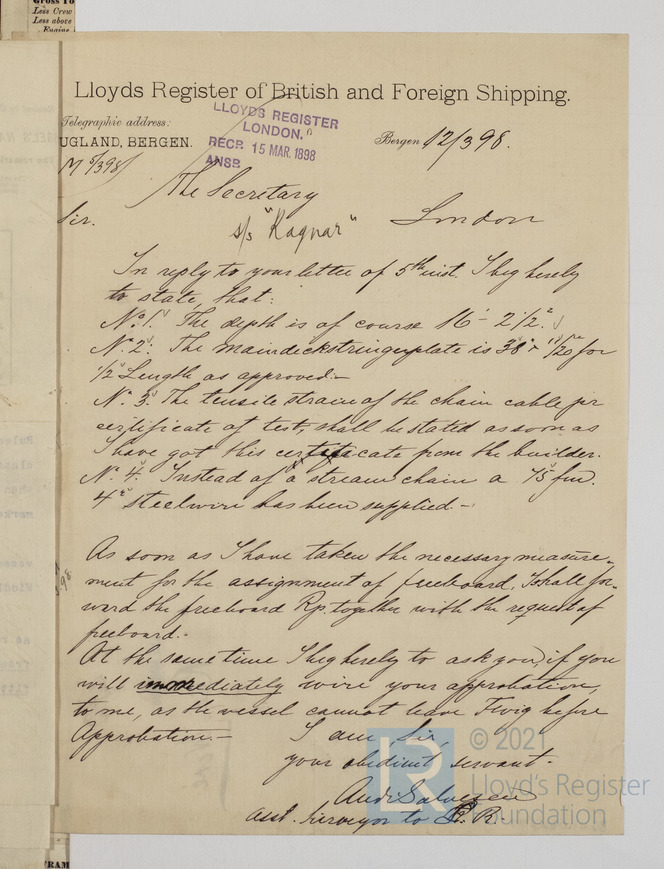 Gross To
Less Crew
Less above
Engine
Lloyds Register of British and Foreign Shipping.
Telegraphic address:
UGLAND, BERGEN.
LLOYDS REGISTER
LONDON.
RECP. 15 MAR. 1898
ANSP
Bergen 12/3 98.
M 5/3 98
The Secretary
Sir.
London
s/s "Ragnar"
In reply to your letter of 5th inst. I beg hereby
to state, that:
No. 1. The depth is of course 16' - 2 1/2".
No. 2. The maindeckstringerplate is 38" × /20 for
1/2 Length as approved.-
No. 3. The tensile strain of the chain cable per
certificate of test, shall be stated as soon as
I have got this certificate from the builder.
No. 4. Instead of a stream chain a 75 fm.
4" steelwire has been supplied.-
As soon as I have taken the necessary measure-
ment for the assignment of freeboard, I shall for-
ward the freeboard Rp. together with the request of
freeboard.-
At the same time I beg hereby to ask you, if you
will immediately wire your approbation,
to me, as the vessel cannot leave before
Approbation.-
I am, Sir,
your obedient servant.
Asst. Surveyor to L. R.
LR
© 2021
Lloyd's Register
Foundation
RAM